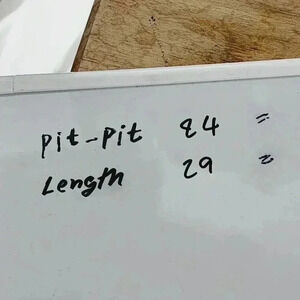 pit-pit 24 "
Length 29 "